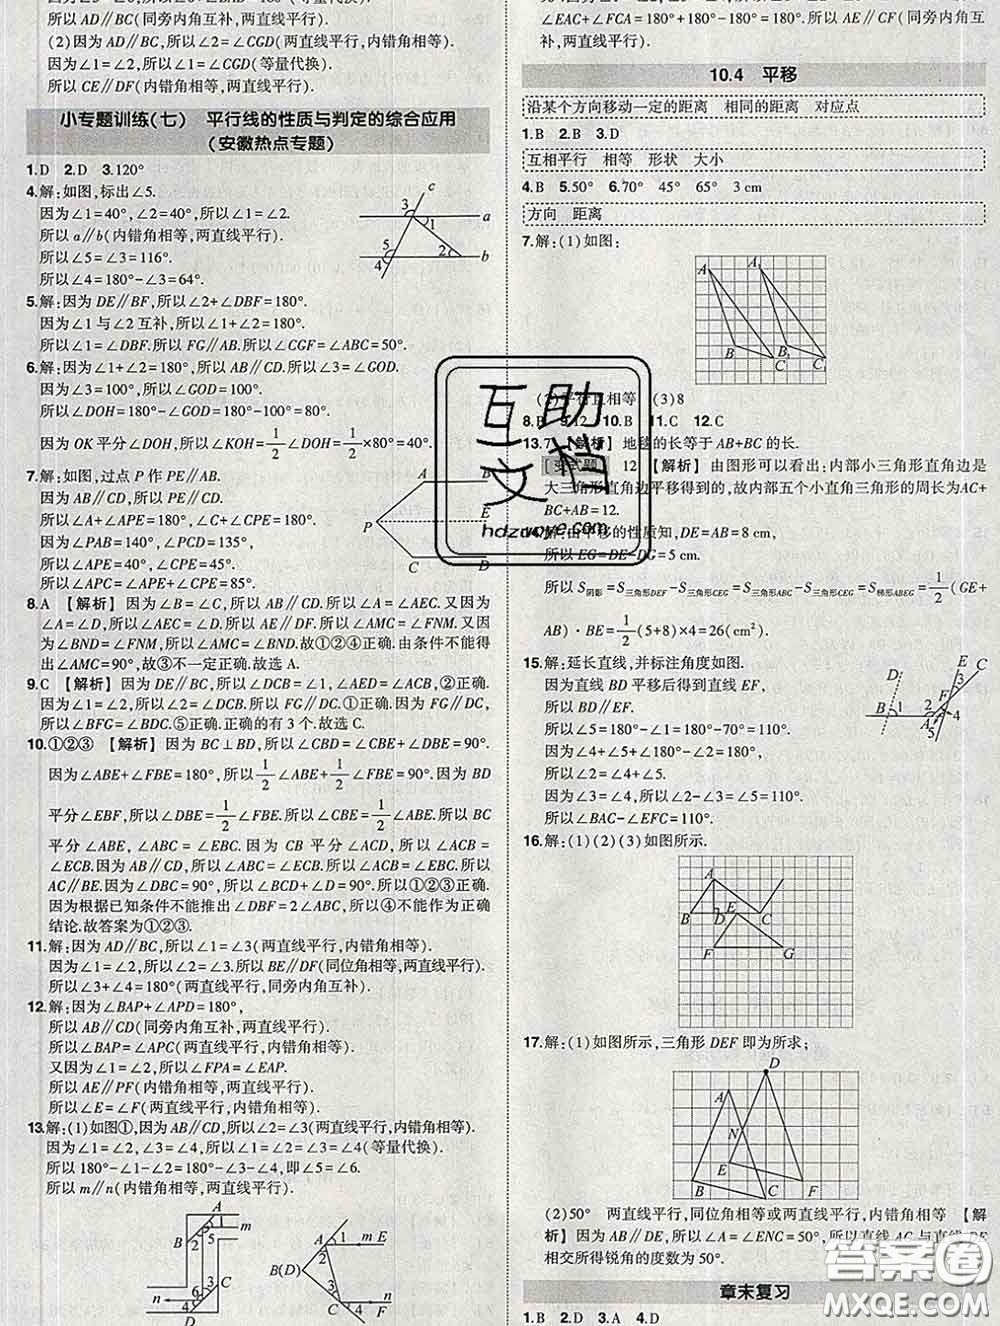 (2)因为AD∥BC,所以∠2=∠CGD(两直线平行,内错角相等).
因为∠1=∠2,所以∠1=∠CGD(等量代换).
所以CE∥DF(内错角相等,两直线平行).
小专题训练(七) 平行线的性质与判定的综合应用
(安徽热点专题)
1.D 2.D 3.120°
4.解:如图,标出∠5.
因为∠1=40°,∠2=40°,所以∠1=∠2.
所以a∥b(内错角相等,两直线平行).
所以∠5=∠3=116°.
所以∠4=180°-∠3=64°.
c
3
1
a
5
2
4
b
5.解:因为DE∥BF,所以∠2+∠DBF=180°.
因为∠1与∠2互补,所以∠1+∠2=180°.
所以∠1=∠DBF.所以FG∥AB.所以∠CGF=∠ABC=50°.
6.解:因为∠1+∠2=180°,所以AB∥CD.所以∠3=∠GOD.
因为∠3=100°,所以∠GOD=100°.
所以∠DOH=180°-∠GOD=180°-100°=80°.
因为OK平分∠DOH,所以∠KOH=1/2∠DOH=1/2×80°=40°.
7.解:如图,过点P作PE∥AB.
因为AB∥CD,所以PE∥CD.
所以∠A+∠APE=180°,∠C+∠CPE=180°.
因为∠PAB=140°,∠PCD=135°,
所以∠APE=40°,∠CPE=45°.
所以∠APC=∠APE+∠CPE=85°.
A
B
P
E
C
D
8.A 【解析】因为∠B=∠C,所以AB∥CD.所以∠A=∠AEC.又因为
∠A=∠D,所以∠AEC=∠D.所以AE∥DF.所以∠AMC=∠FNM.又因为
∠BND=∠FNM,所以∠AMC=∠BND.故①②④正确.由条件不能得
出∠AMC=90°,故③不一定正确.故选A.
9.C 【解析】因为DE∥BC,所以∠DCB=∠1,∠AED=∠ACB,②正确.
因为∠1=∠2,所以∠2=∠DCB.所以FG∥DC.①正确.因为FG∥DC,
所以∠BFG=∠BDC.⑤正确.正确的有3个.故选C.
10.①②③ 【解析】因为BC⊥BD,所以∠CBD=∠CBE+∠DBE=90°.
因为∠ABE+∠FBE=180°,所以1/2∠ABE+1/2∠FBE=90°.因为BD
平分∠EBF,所以∠DBE=1/2∠FBE.所以∠CBE=1/2∠FBE.所以BC
平分∠ABE,∠ABC=∠EBC.因为CB平分∠ACD,所以∠ACB=
∠ECB.因为AB∥CD,所以∠ABC=∠ECB.所以∠ACB=∠EBC.所以
AC∥BE.因为∠DBC=90°,所以∠BCD+∠D=90°.所以①②③正确.
因为根据已知条件不能推出∠DBF=2∠ABC,所以④不能作为正确
结论.故答案为①②③.
11.解:因为AD∥BC,所以∠1=∠3(两直线平行,内错角相等).
因为∠1=∠2,所以∠2=∠3.所以BE∥DF(同位角相等,两直线平行).
所以∠3+∠4=180°(两直线平行,同旁内角互补).
12.解:因为∠BAP+∠APD=180°,
所以AB∥CD(同旁内角互补,两直线平行).
所以∠BAP=∠APC(两直线平行,内错角相等).
又因为∠1=∠2,所以∠FPA=∠EAP.
所以AE∥PF(内错角相等,两直线平行).
所以∠E=∠F(两直线平行,内错角相等).
13.解:(1)如图①,因为AB∥CD,所以∠2=∠3(两直线平行,内错角相等).
因为∠1=∠2,∠3=∠4,所以∠1=∠2=∠3=∠4(等量代换).
所以180°-∠1-∠2=180°-∠3-∠4,即∠5=∠6.
所以m∥n(内错角相等,两直线平行).
A
m
B
2
C
3
6
4
n
D
A
1
m
E
2
B(D)
3
C
4
n
F
∠EAC+∠FCA=180°+180°-180°=180°.所以AE∥CF(同旁内角互
补,两直线平行).
10.4 平移
沿某个方向移动一定的距离 相同的距离 对应点
1.B 2.B 3.D
互相平行 相等 形状 大小
4.B 5.50° 6.70° 45° 65° 3 cm
方向 距离
7.解:(1)如图:
A
A₁
B
B₁
C
C₁
(2)平行且相等 (3)8
8.B 9.12 10.B 11.C 12.C
13.7 【解析】地毯的长等于AB+BC的长.
变式题 12 【解析】由图形可以看出:内部小三角形直角边是
大三角形直角边平移得到的,故内部五个小直角三角形的周长为AC+
BC+AB=12.
14.解:由平移的性质知,DE=AB=8 cm,
所以EG=DE-DG=5 cm.
所以S阴影=S三角形DEF-S三角形CEG=S三角形ABC-S三角形CEG=S梯形ABEG=1/2(GE+
AB)·BE=1/2(5+8)×4=26(cm²).
15.解:延长直线,并标注角度如图.
因为直线BD平移后得到直线EF,
所以BD∥EF.
所以∠5=180°-∠1=180°-70°=110°.
所以∠2=∠4+∠5.
因为∠3=∠4,所以∠2-∠3=∠5=110°.
所以∠BAC-∠EFC=110°.
E
C
D
3
F
B
1
2
4
A
5
16.解:(1)(2)(3)如图所示.
A
B
D
E
C
F
G
17.解:(1)如图所示,三角形DEF即为所求;
D
A
N
E
B
F
C
(2)50° 两直线平行,同位角相等或两直线平行,内错角相等 【解
析】因为AB∥DE,所以∠A=∠ENC=50°,所以直线AC与直线DE
相交所得锐角的度数为50°.
章末复习
1.B 2.D 3.A 4.D
互助
文档
hdzuoye.com
答案圈
MXQE.COM